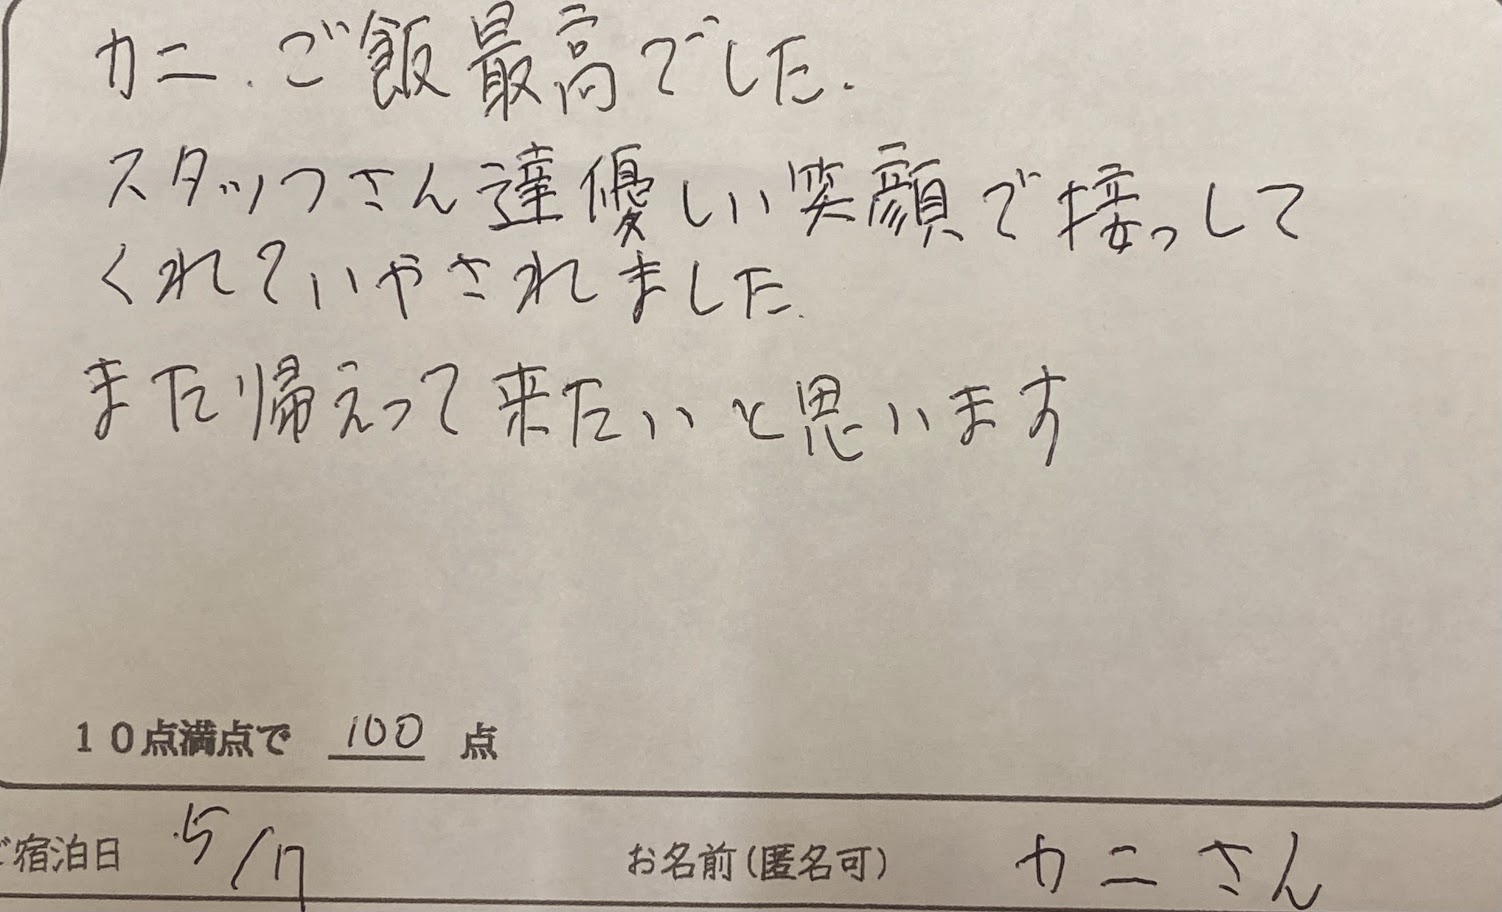 カニ.ご飯最高でした.
スタッフさん達優しい笑顔で接っして
くれていやされました.
また帰えって来たいと思います
10点満点で 100 点
ご宿泊日 5/17 お名前(匿名可) カニさん